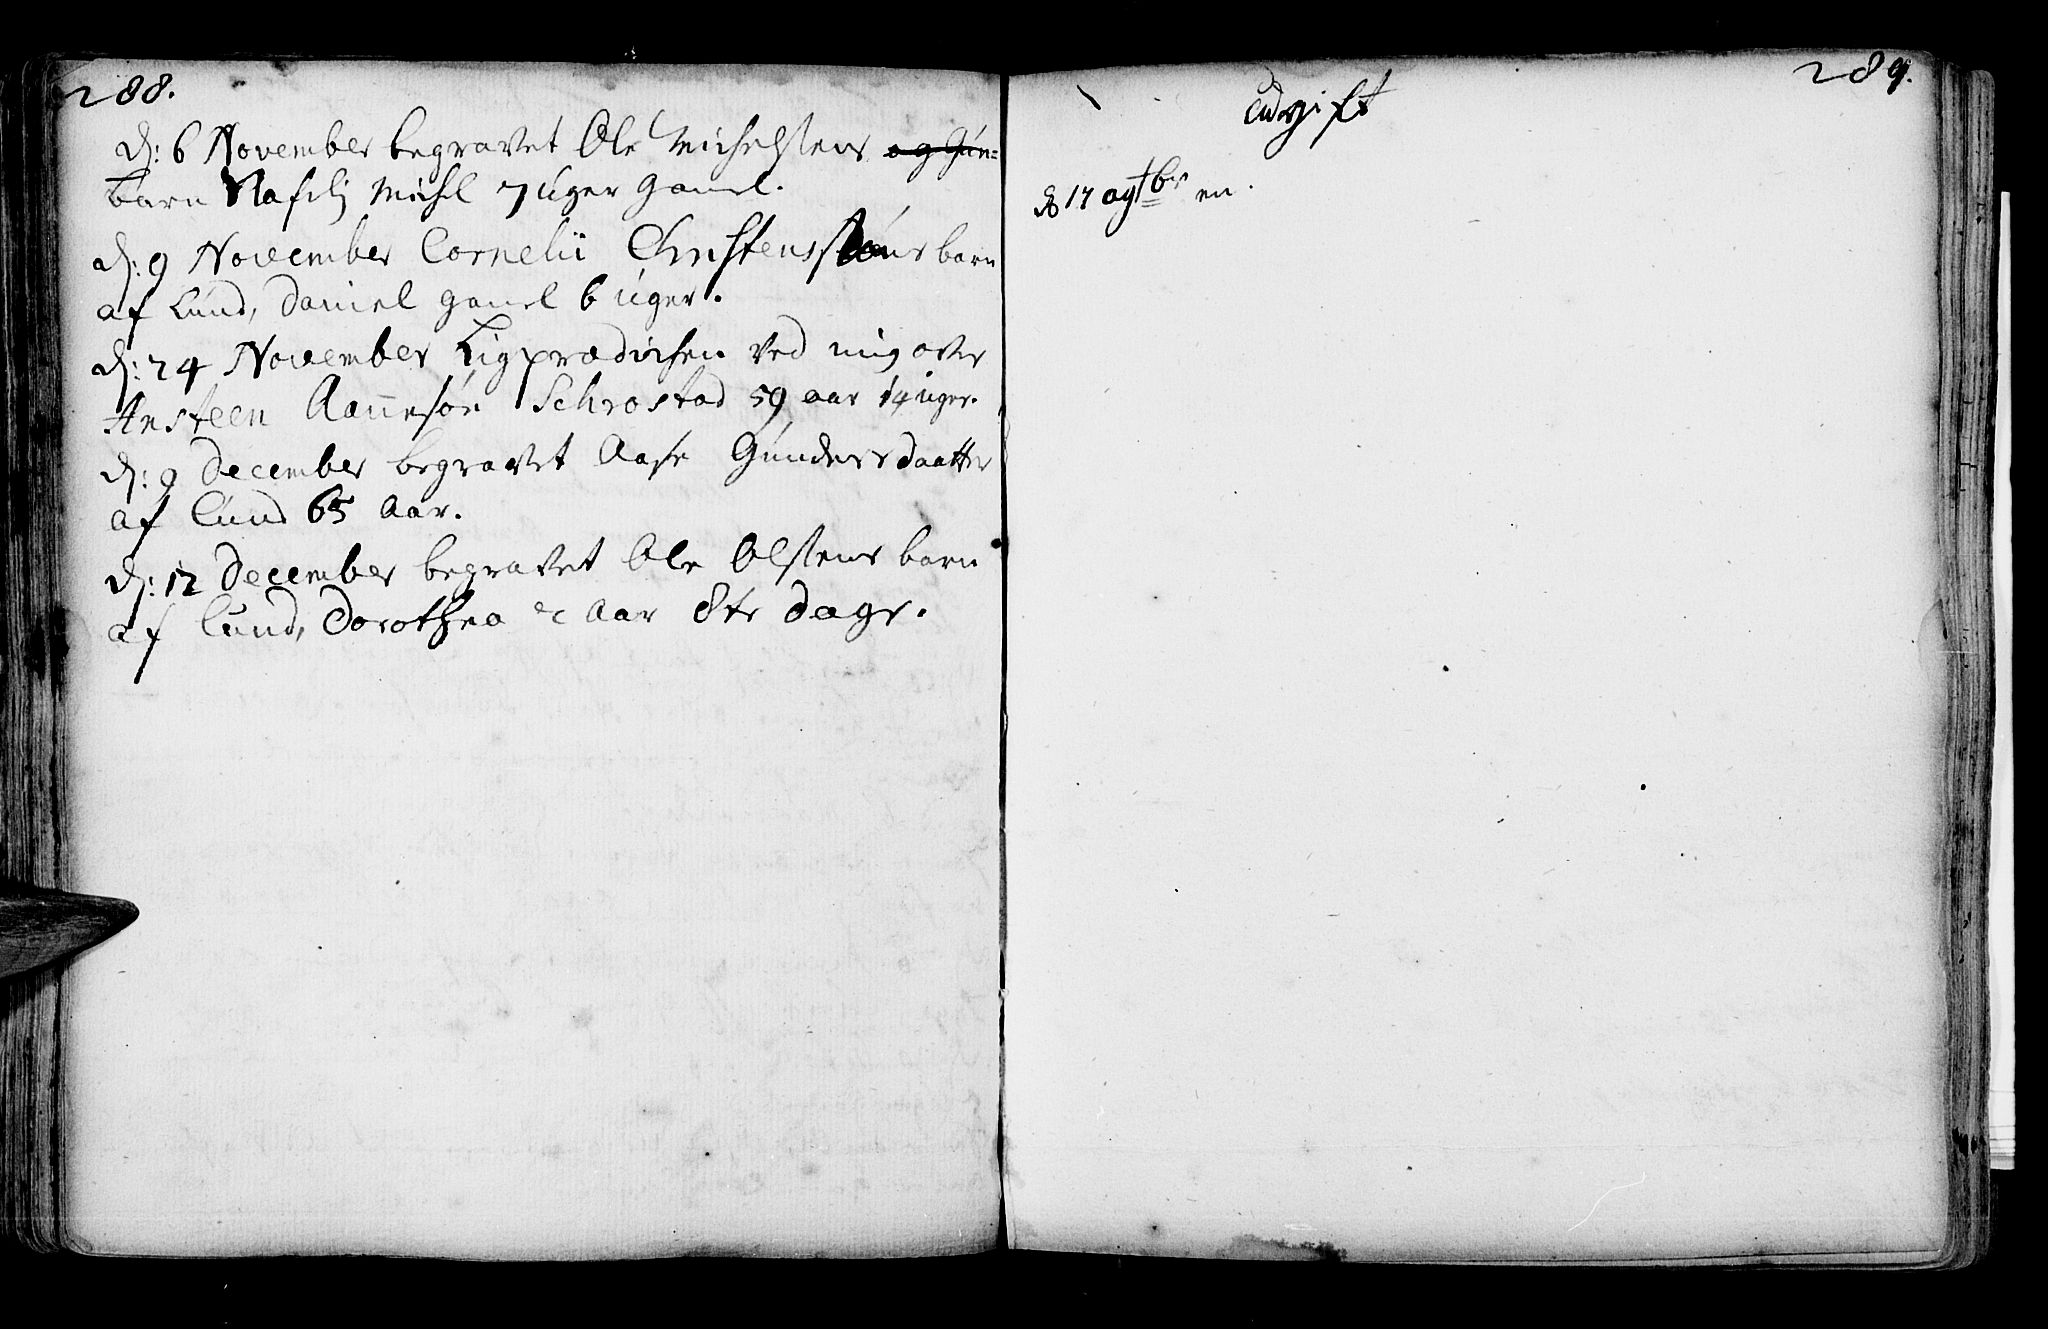 288.
d: 6 November begravet Ole Michelstens og Gun=
barn Michel 7 uger gamel.
d: 9 November Cornelii Christenssøns barn
af Lund, Daniel gamel 6 uger.
d: 24 November Ligprædichen ved mig over
Ansteen Aannesøn Schrostad 59 aar 14 uger.
d: 9 December begravet Aase Gundersdaatter
af Lund 65 Aar.
d: 12 December begravet Ole Olstens barn
af Lund, Dorothea 2 Aar 8te dage.
289.
Udgift
d 17 en.